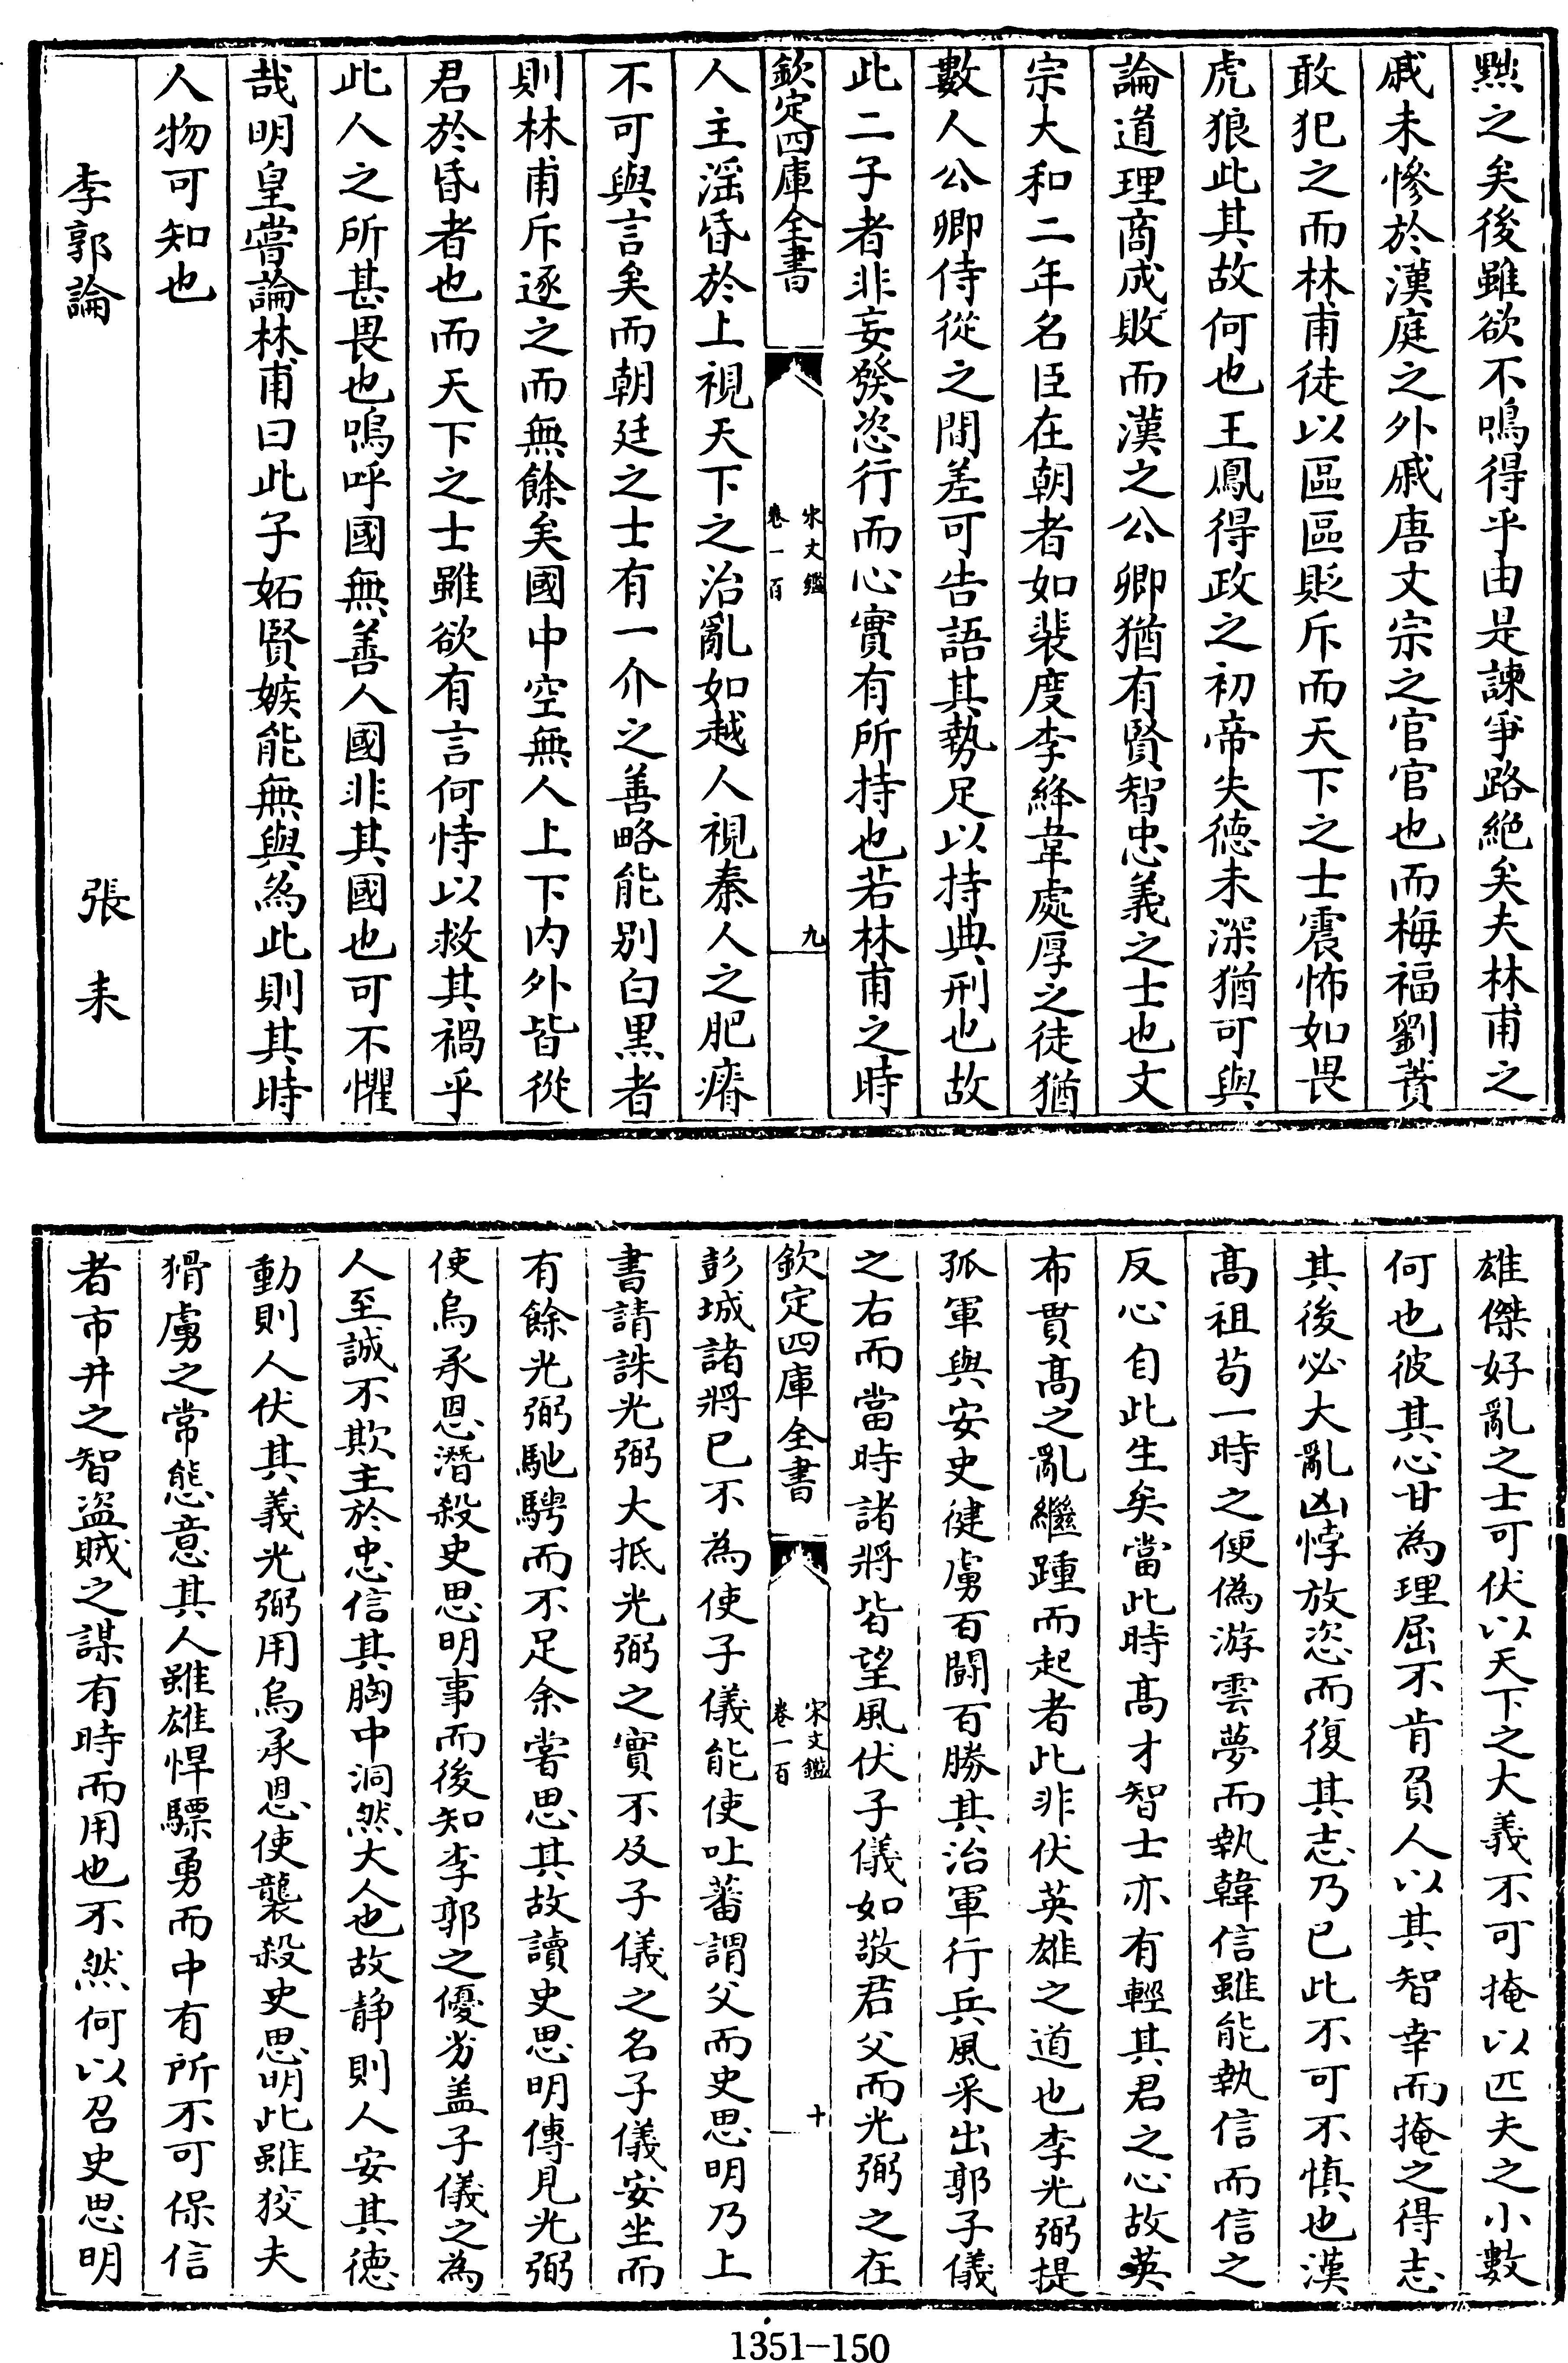 黜之矣後雖欲不鳴得乎由是諫爭路絕矣夫林甫之
戚未慘於漢庭之外戚唐文宗之宦官也而梅福劉蕡
敢犯之而林甫徒以區區貶斥而天下之士震怖如畏
虎狼此其故何也王鳳得政之初帝失德未深猶可與
論道理商成敗而漢之公卿猶有賢智忠義之士也文
宗大和二年名臣在朝者如裴度李絳韋處厚之徒猶
數人公卿侍從之間差可告語其勢足以持典刑也故
此二子者非妄發恣行而心實有所持也若林甫之時
欽定四庫全書
宋文鑑
卷一百
九
人主滛昏於上視天下之治亂如越人視秦人之肥瘠
不可與言矣而朝廷之士有一介之善略能別白黑者
則林甫斥逐之而無餘矣國中空無人上下內外皆從
君於昏者也而天下之士雖欲有言何恃以救其禍乎
此人之所甚畏也嗚呼國無善人國非其國也可不懼
哉明皇嘗論林甫曰此子妬賢嫉能無與為此則其時
人物可知也
李郭論
張耒
雄傑好亂之士可伏以天下之大義不可掩以匹夫之小數
何也彼其心甘為理屈不肯負人以其智幸而掩之得志
其後必大亂凶悖放恣而復其志乃已此不可不慎也漢
高祖苟一時之便偽游雲夢而執韓信雖能執信而信之
反心自此生矣當此時高才智士亦有輕其君之心故英
布貫高之亂繼踵而起者此非伏英雄之道也李光弼提
孤軍與安史健虜百鬪百勝其治軍行兵風采出郭子儀
之右而當時諸將皆望風伏子儀如敬君父而光弼之在
欽定四庫全書
宋文鑑
卷一百
十
彭城諸將已不為使子儀能使吐蕃謂父而史思明乃上
書請誅光弼大抵光弼之實不及子儀之名子儀安坐而
有餘光弼馳騁而不足余嘗思其故讀史思明傳見光弼
使烏承恩潛殺史思明事而後知李郭之優劣盖子儀之為
人至誠不欺主於忠信其胸中洞然大人也故静則人安其德
動則人伏其義光弼用烏承恩使襲殺史思明此雖狡夫
猾虜之常態意其人雖雄悍驃勇而中有所不可保信
者市井之智盜賊之謀有時而用也不然何以召史思明
1351-150